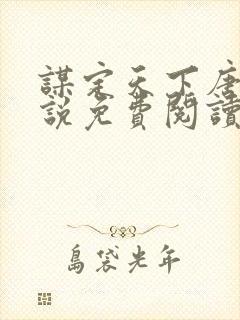 謀定天下唐
說免費閱讀
島袋光年